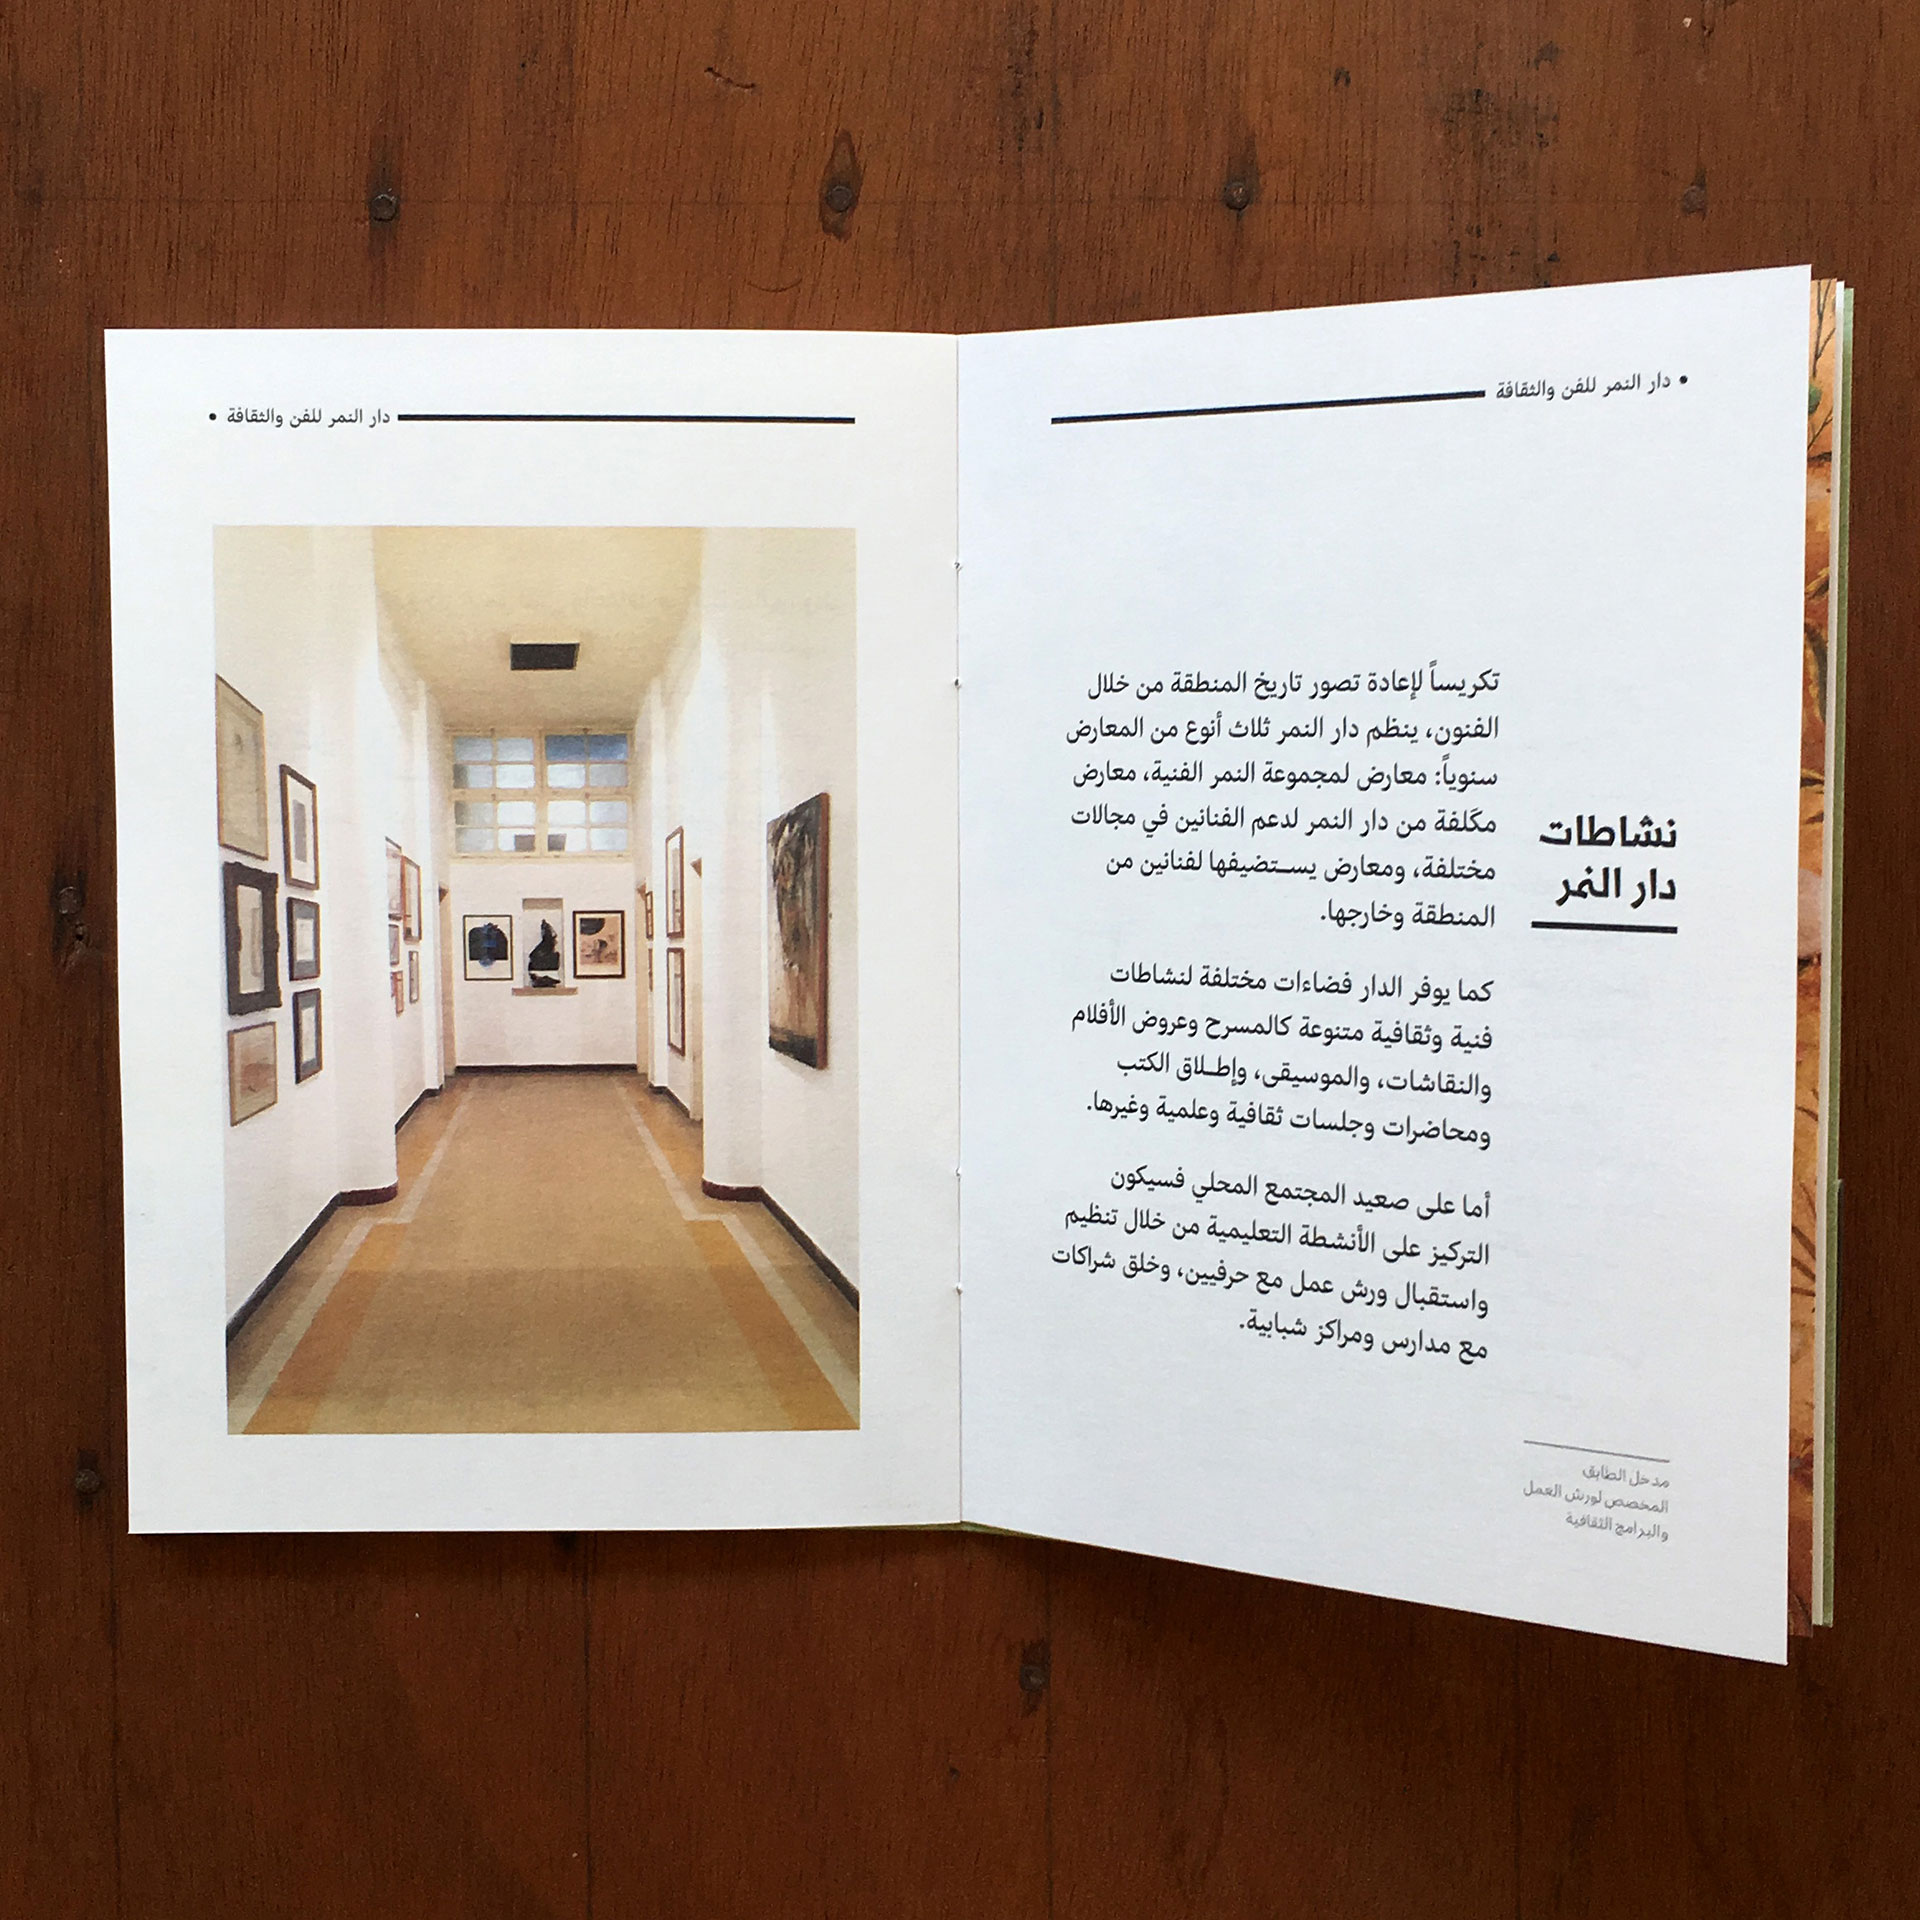 دار النمر للفن والثقافة •
• دار النمر للفن والثقافة
نشاطات
دار النمر
تكريساً لإعادة تصور تاريخ المنطقة من خلال
الفنون، ينظم دار النمر ثلاث أنوع من المعارض
سنوياً: معارض لمجموعة النمر الفنية، معارض
مكَلفة من دار النمر لدعم الفنانين في مجالات
مختلفة، ومعارض يستضيفها لفنانين من
المنطقة وخارجها.
كما يوفر الدار فضاءات مختلفة لنشاطات
فنية وثقافية متنوعة كالمسرح وعروض الأفلام
والنقاشات، والموسيقى، وإطلاق الكتب
ومحاضرات وجلسات ثقافية وعلمية وغيرها.
أما على صعيد المجتمع المحلي فسيكون
التركيز على الأنشطة التعليمية من خلال تنظيم
واستقبال ورش عمل مع حرفيين، وخلق شراكات
مع مدارس ومراكز شبابية.
مدخل الطابق
المخصص لورش العمل
والبرامج الثقافية